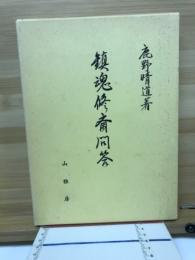 鹿野晴道著
鎮魂修斎問答
山雅房